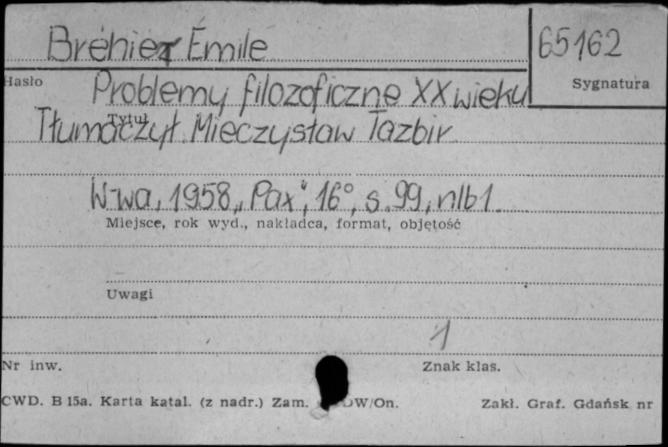 Bréhier Émile
65162
Hasło
Sygnatura
Problemy filozoficzne XX wieku
Tytuł
Tłumaczył Mieczysław Tazbir
W-wa, 1958, „Pax", 16°, s. 99, nlb 1.
Miejsce, rok wyd., nakładca, format, objętość
Uwagi
1
Nr inw.
Znak klas.
CWD. B 15a. Karta katal. (z nadr.) Zam. DW/On.
Zakł. Graf. Gdańsk nr